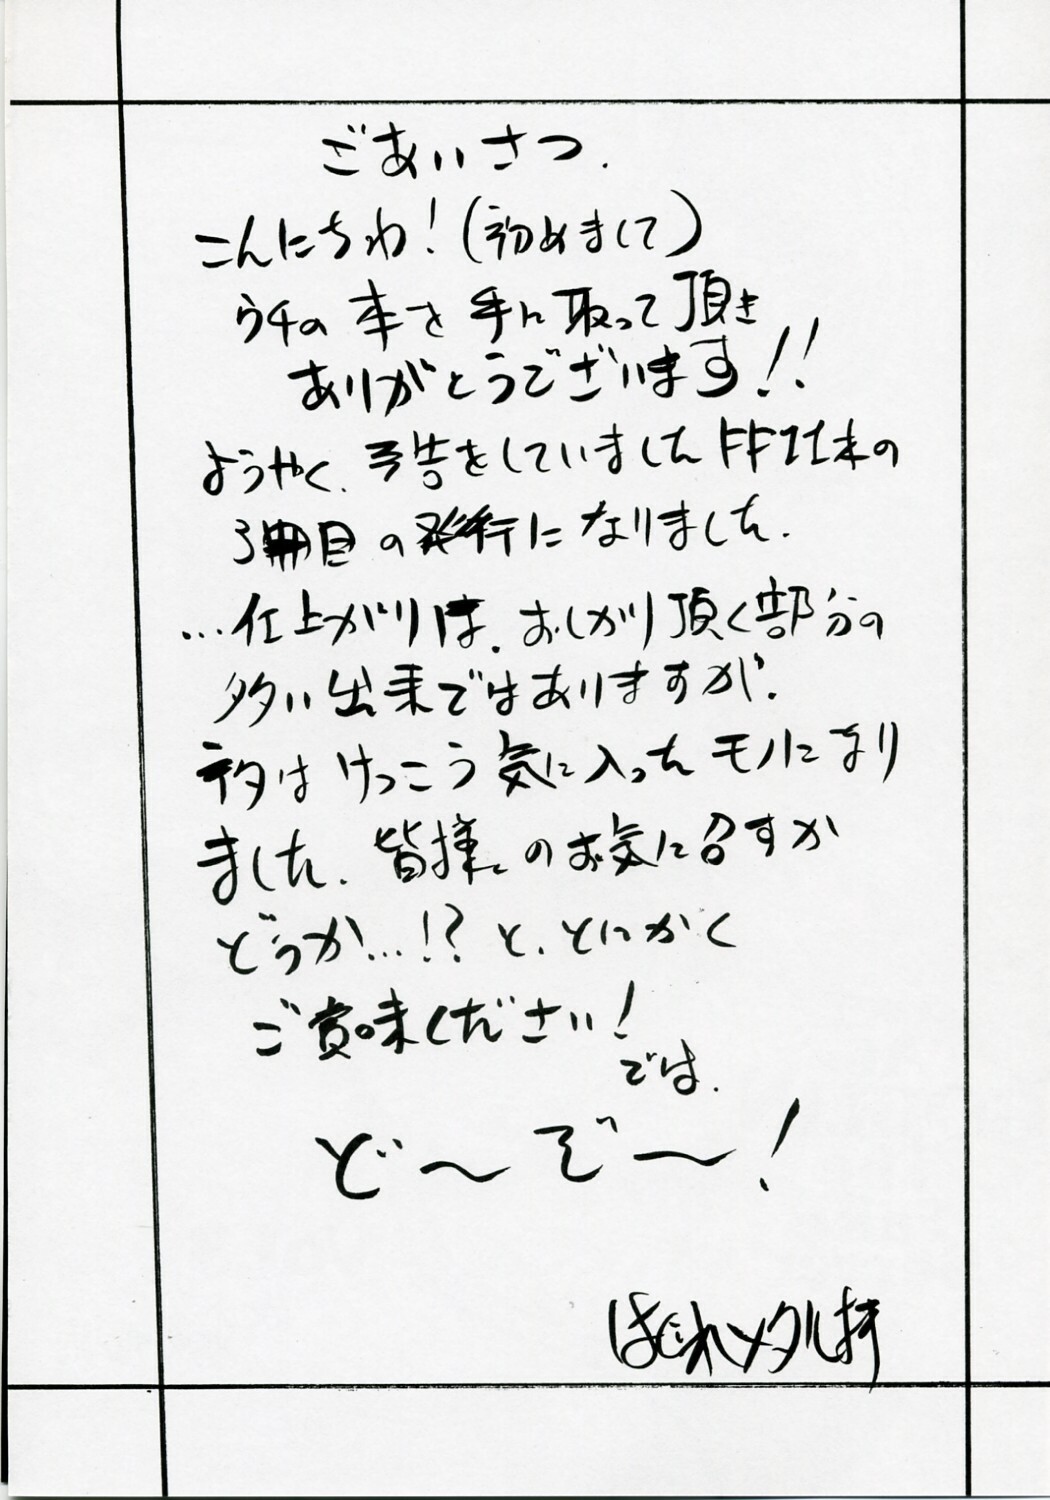 ごあいさつ.
こんにちわ!(初めまして)
ウチの本を手に取って頂き
ありがとうございます!!
ようやく、予告をしていましたFFⅫ本の
3冊目の発行になりました.
…仕上がりは、おしかり頂く部分の
多い出来ではありますが、
ネタはけっこう気に入ったモノになり
ました、皆様のお気に召すか
どうか…!?と、とにかく
ご賞味ください!
では、
ど〜ぞ〜!
メタル